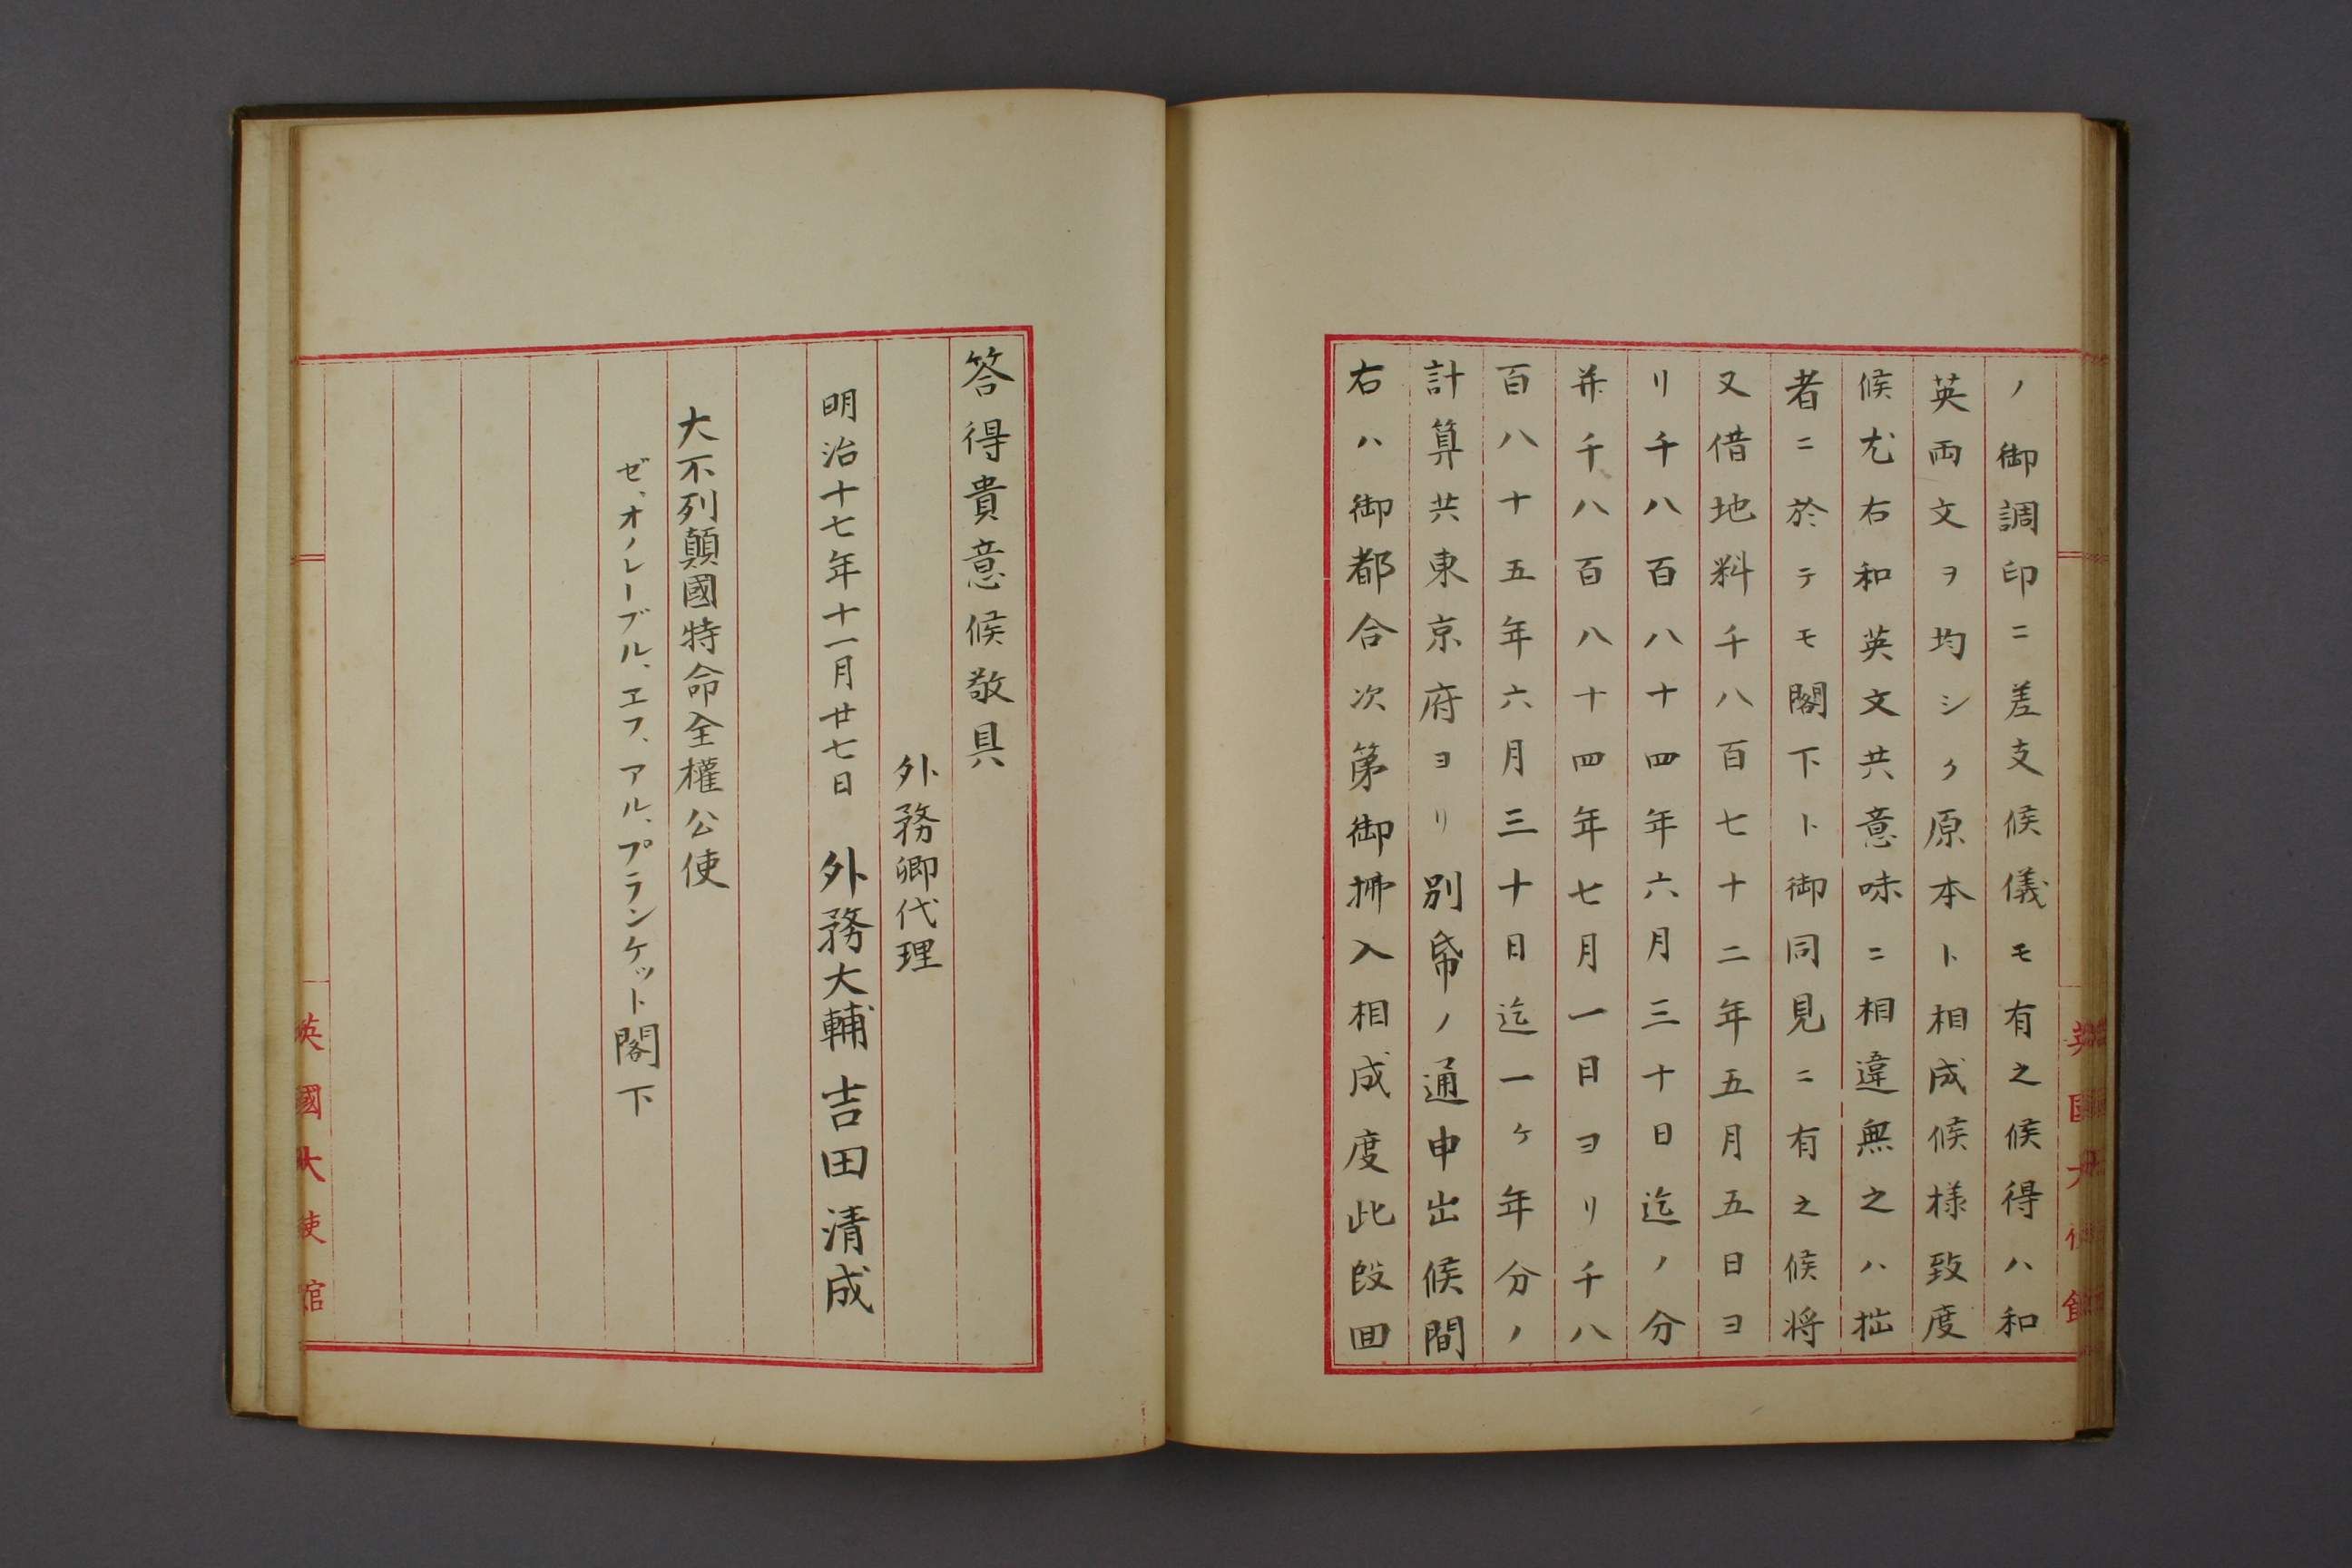 ノ御調印ニ差支候儀モ有之候得ハ和
英両文ヲ均シク原本ト相成候様致度
候尤右和英文共意味ニ相違無之ハ拙
者ニ於テモ閣下ト御同見ニ有之候将
又借地料千八百七十二年五月五日ヨ
リ千八百八十四年六月三十日迄ノ分
并千八百八十四年七月一日ヨリ千八
百八十五年六月三十日迄一ヶ年分ノ
計算共東京府ヨリ別帋ノ通申出候間
右ハ御都合次第御拂入相成度此段回
答得貴意候敬具
外務卿代理
明治十七年十一月廿七日 外務大輔 吉田清成
大不列顛國特命全權公使
ゼ、オノレーブル、エフ、アル、プランケット閣下
英國大使館